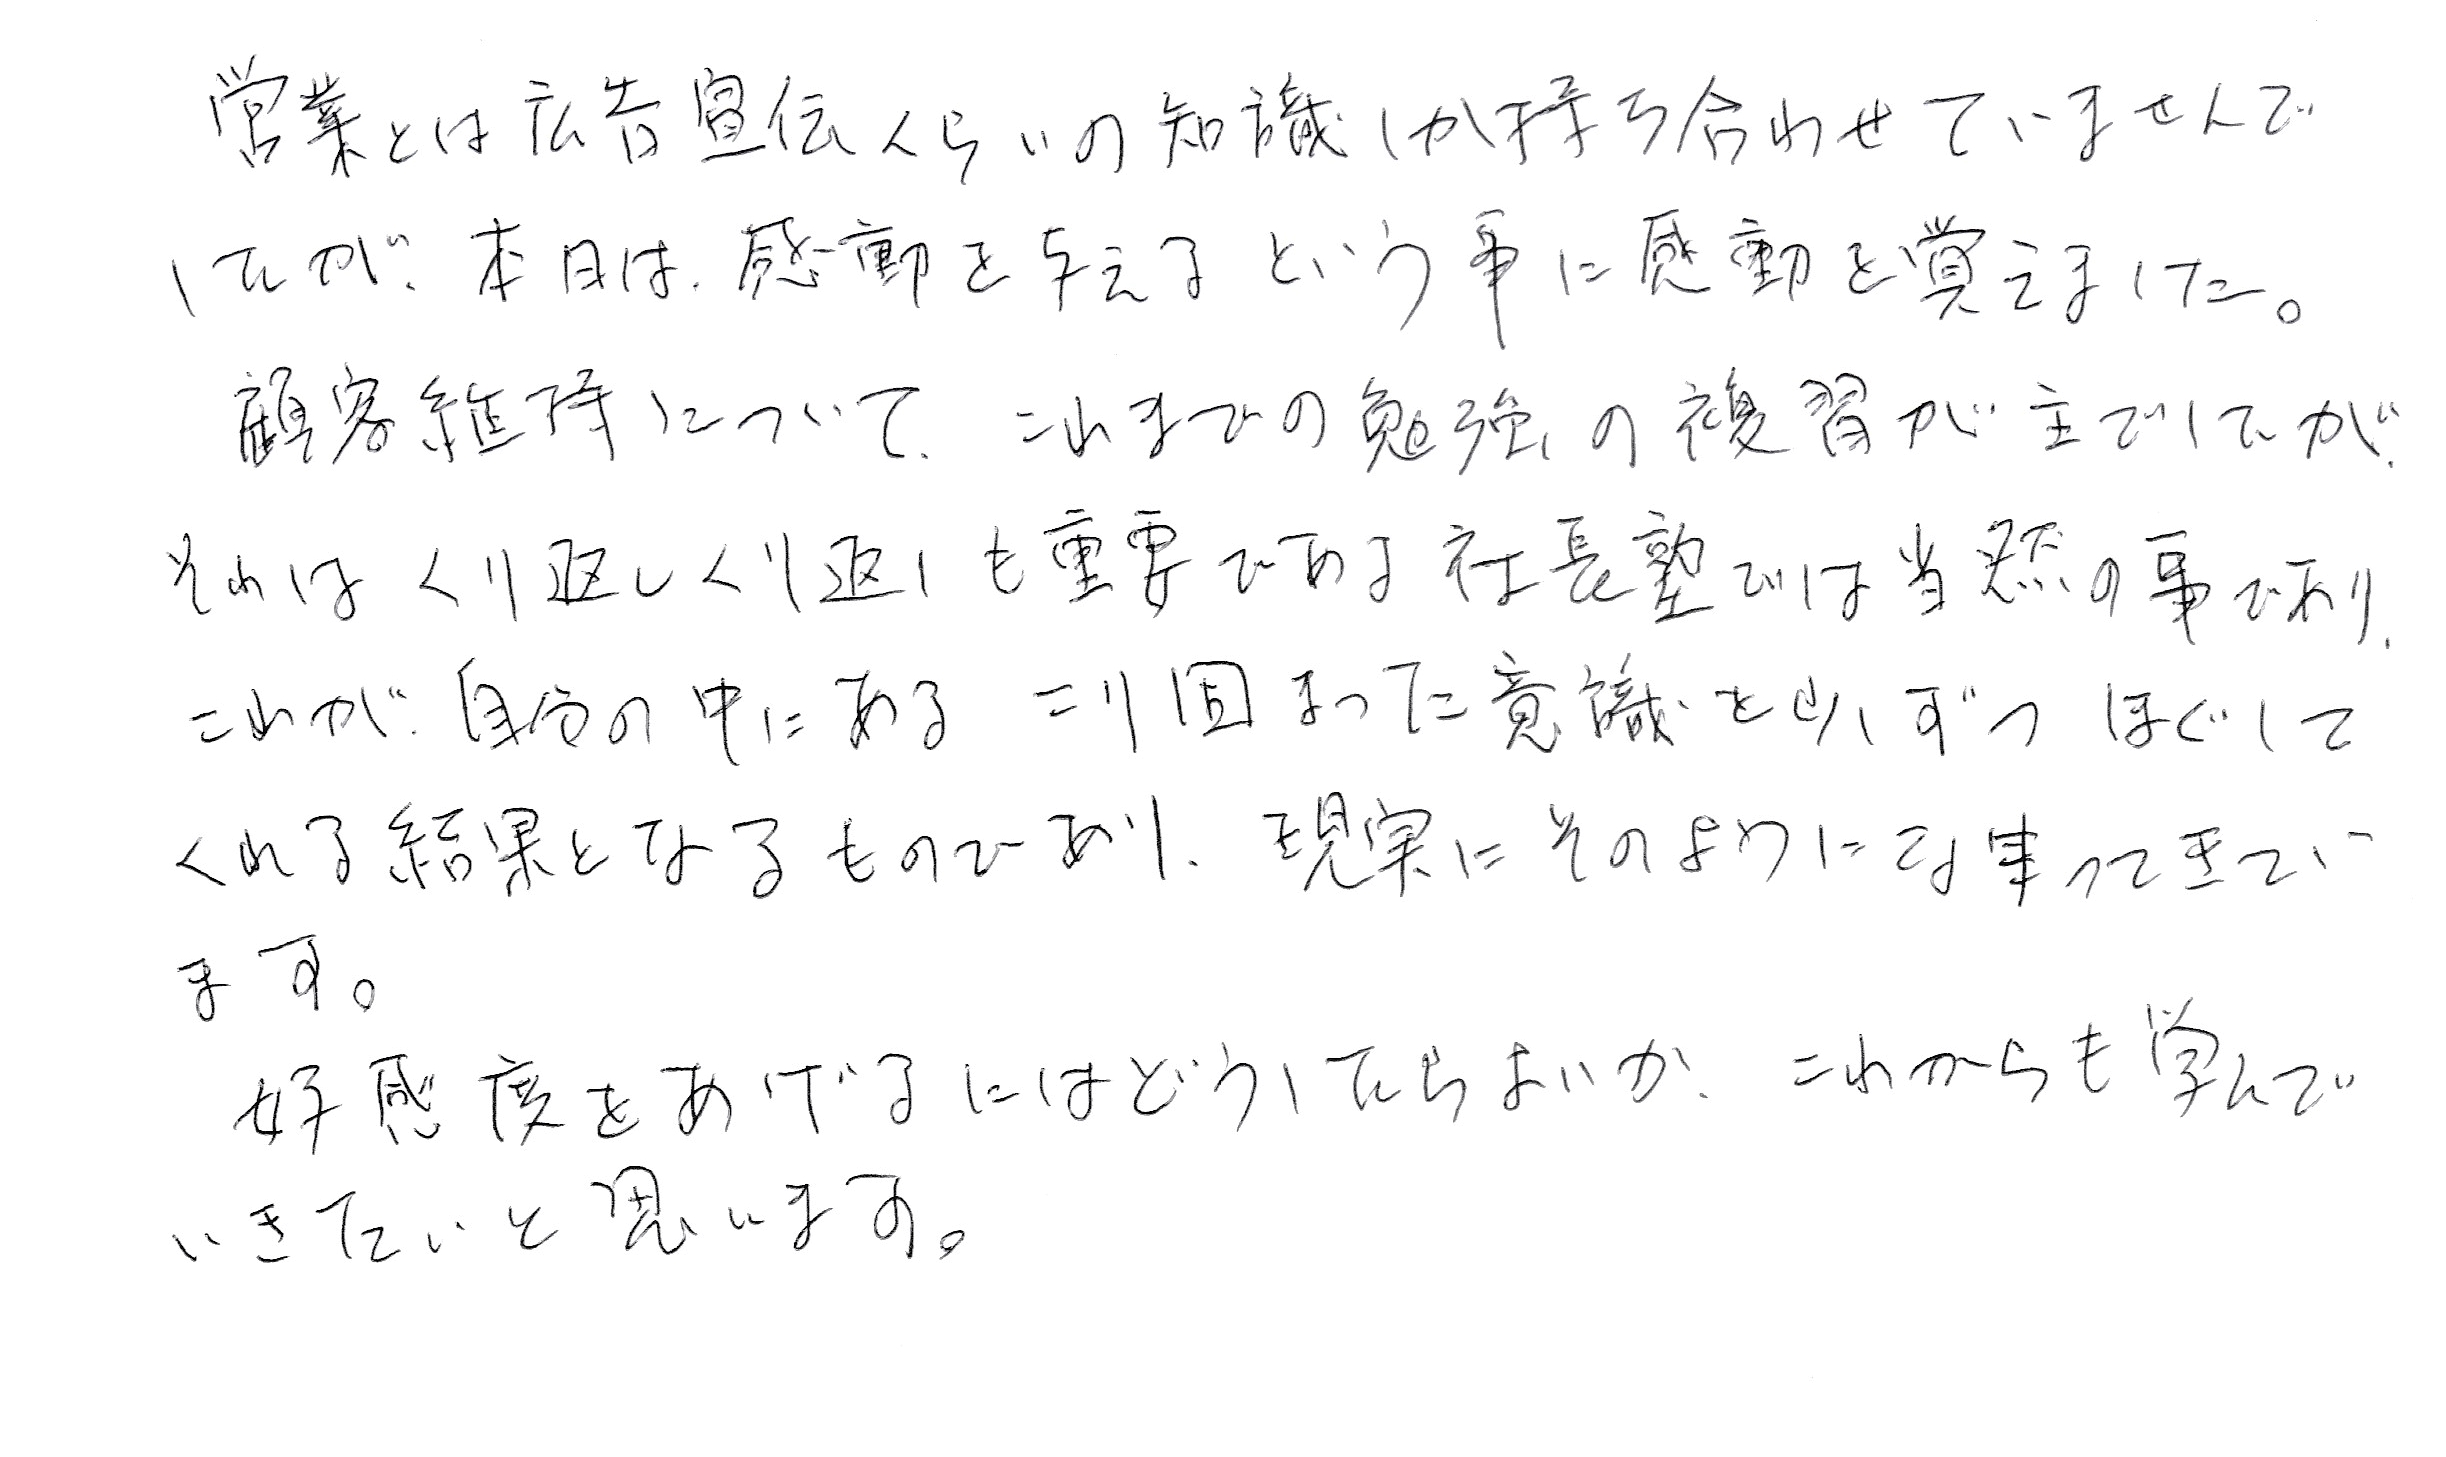 営業とは広告宣伝くらいの知識しか持ち合わせていませんで
したが、本日は、感動を与えるという事に感動を覚えました。
顧客維持について、これまでの勉強の複習が主でしたが、
それはくり返しくり返しも重要である社長塾では当然の事であり、
これが、自分の中にあるこり固まった意識を少しずつほぐして
くれる結果となるものであり、現実にそのようになってきてい
ます。
好感度をあげるにはどうしたらよいか、これからも学んで
いきたいと思います。